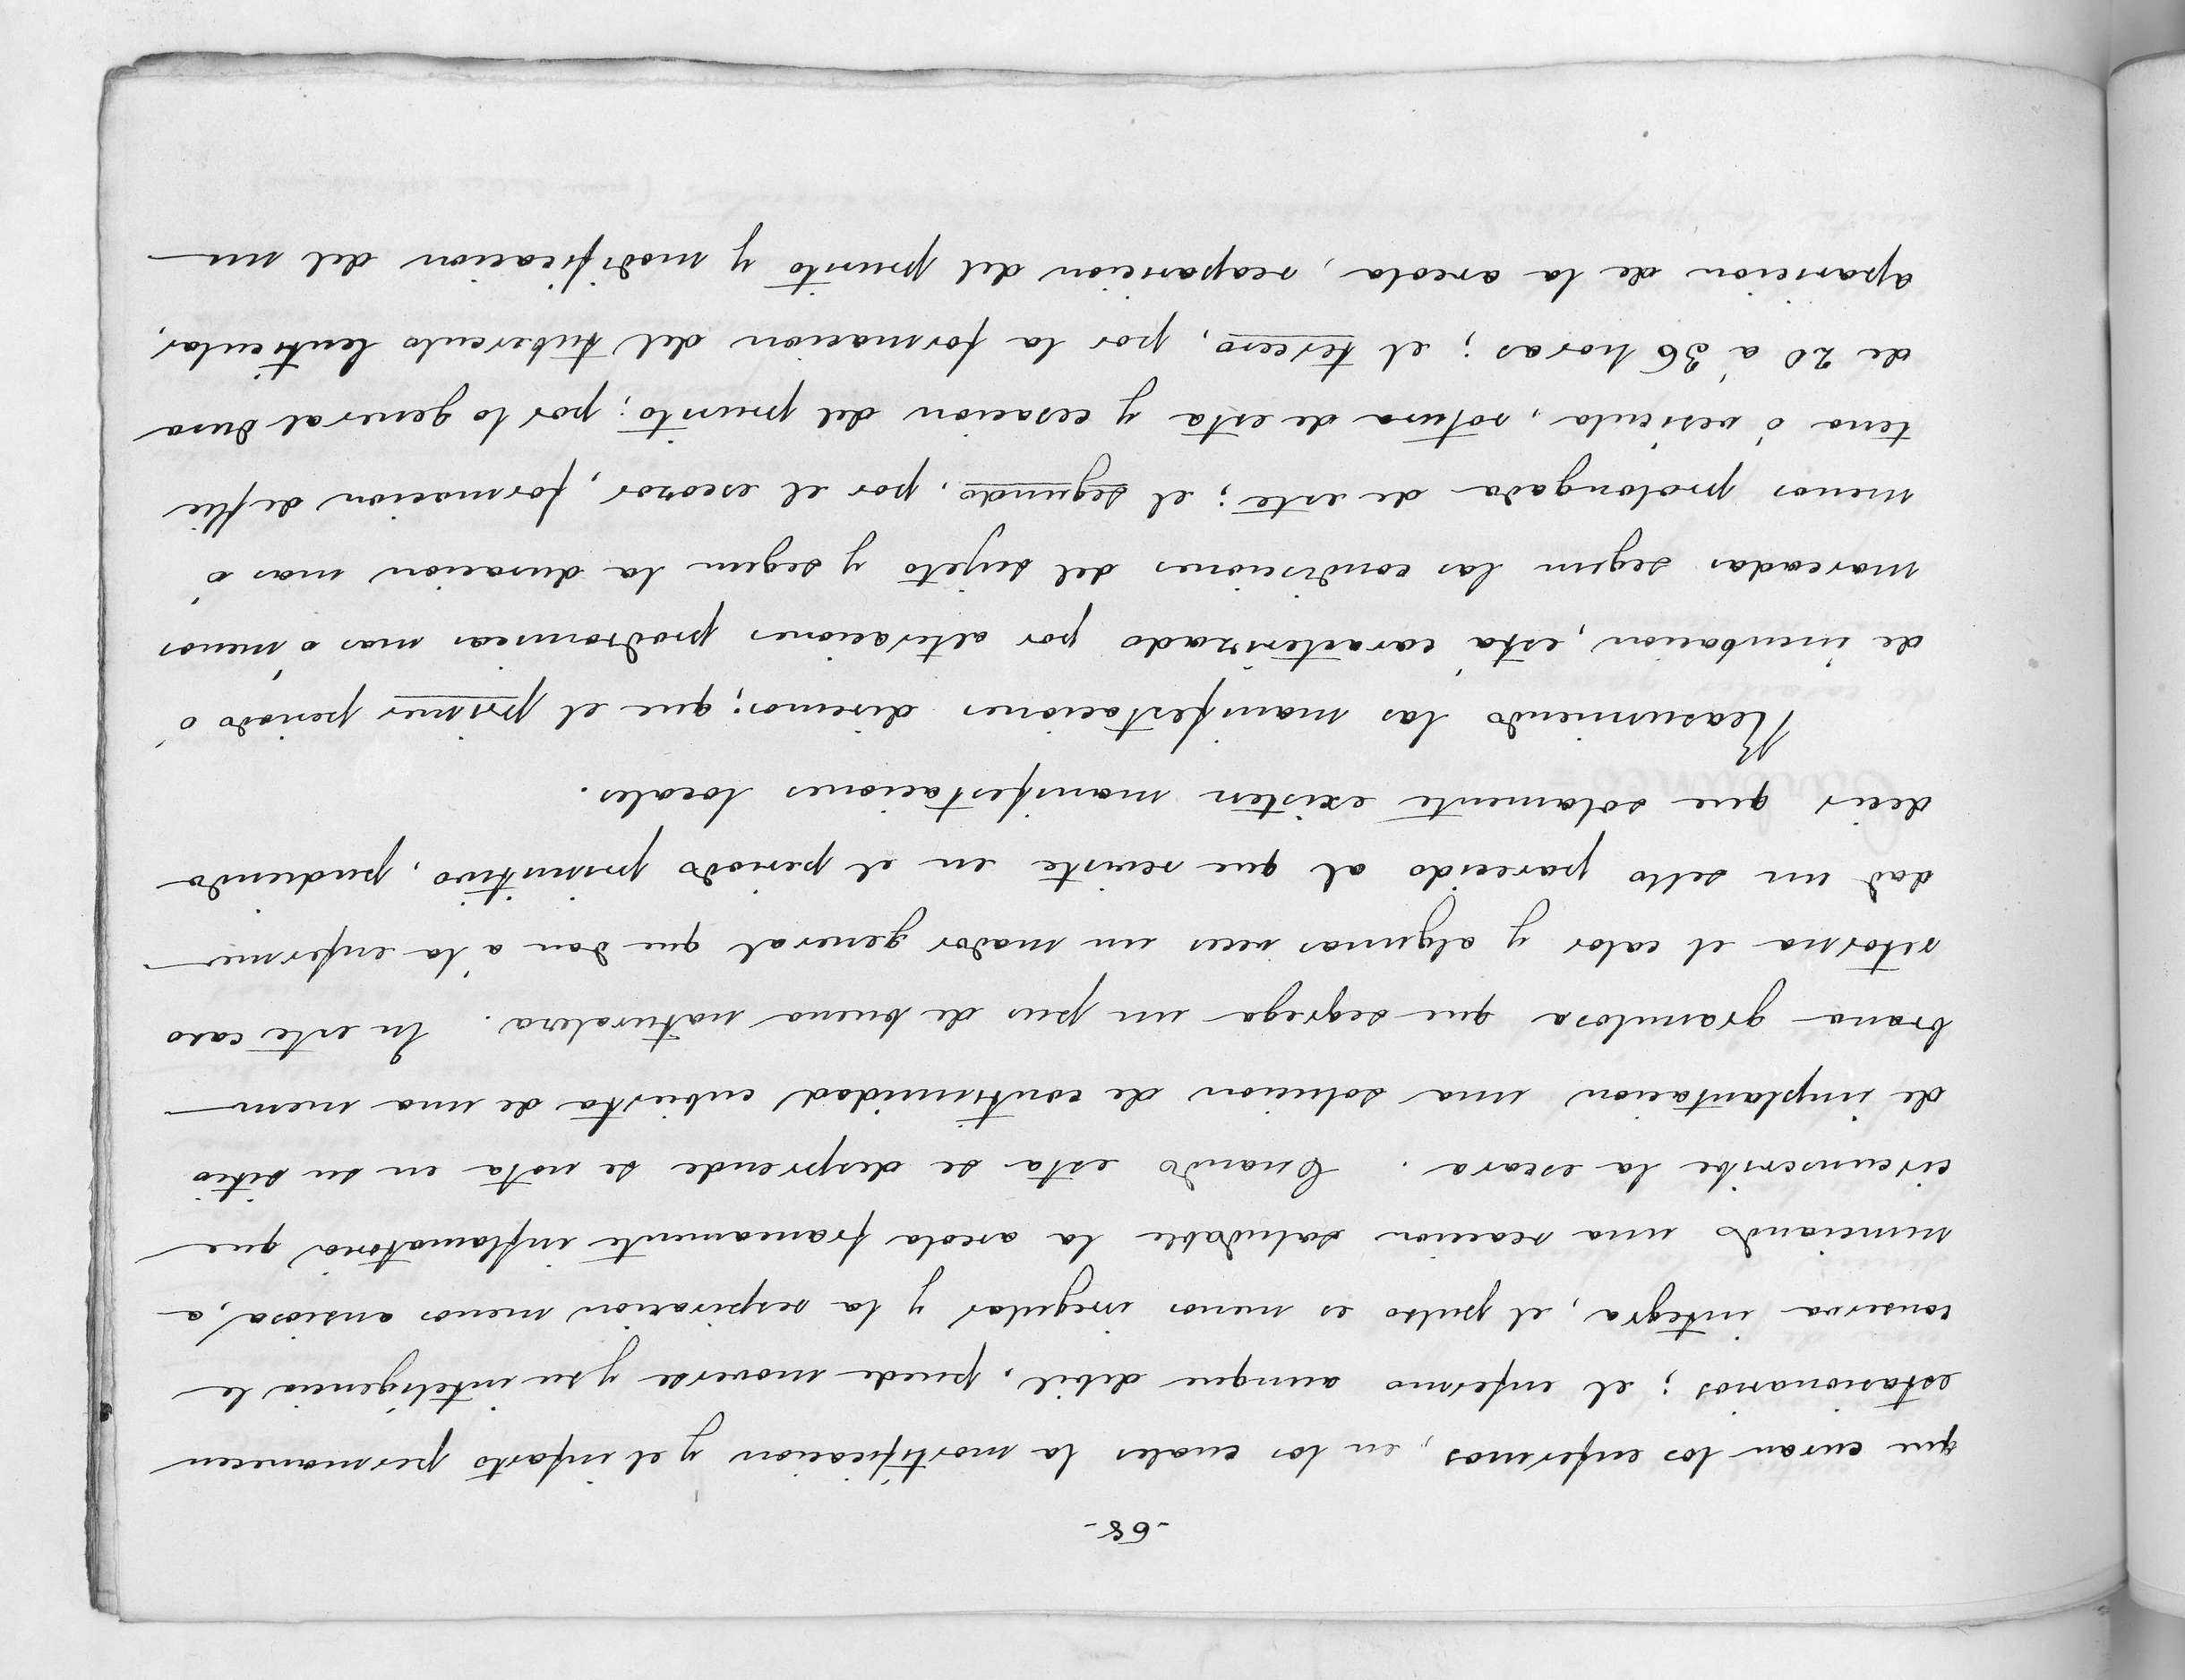 -68-
que curan los enfermos, en los cuales la mortificacion y el infarto permanecen
estasionarios; el enfermo aunque debil, puede moverse y su inteligencia le
conserva integra, el pulso es menos irregular y la respiracion menos ansiosa, a-
nunciando una reaccion saludable la areola francamente inflamatoria que
circunscribe la escara. Cuando esta se desprende se nota en su sitio
de implantacion una solucion de continuidad cubierta de una mem-
brana granulosa que segrega un pus de buena naturaleza. En este caso
retorna el calor y algunas veces un mador general que dan a la enferme-
dad un sello parecido al que reviste en el periodo primitivo, pudiendo
decir que solamente existen manifestaciones locales.
Reasumiendo las manifestaciones diremos; que el primer periodo ó
de incubacion, está caracterizado por alteraciones prodromicas mas ó menos
marcadas segun las condiciones del sujeto y segun la duracion mas ó
menos prolongada de este; el segundo, por el escozor, formacion de flic
tena ó vesicula, rotura de esta y cesacion del prurito; por lo general dura
de 20 á 36 horas; el tercero, por la formacion del tuberculo lenticular,
aparicion de la areola, reaparicion del prurito y modificacion del un-